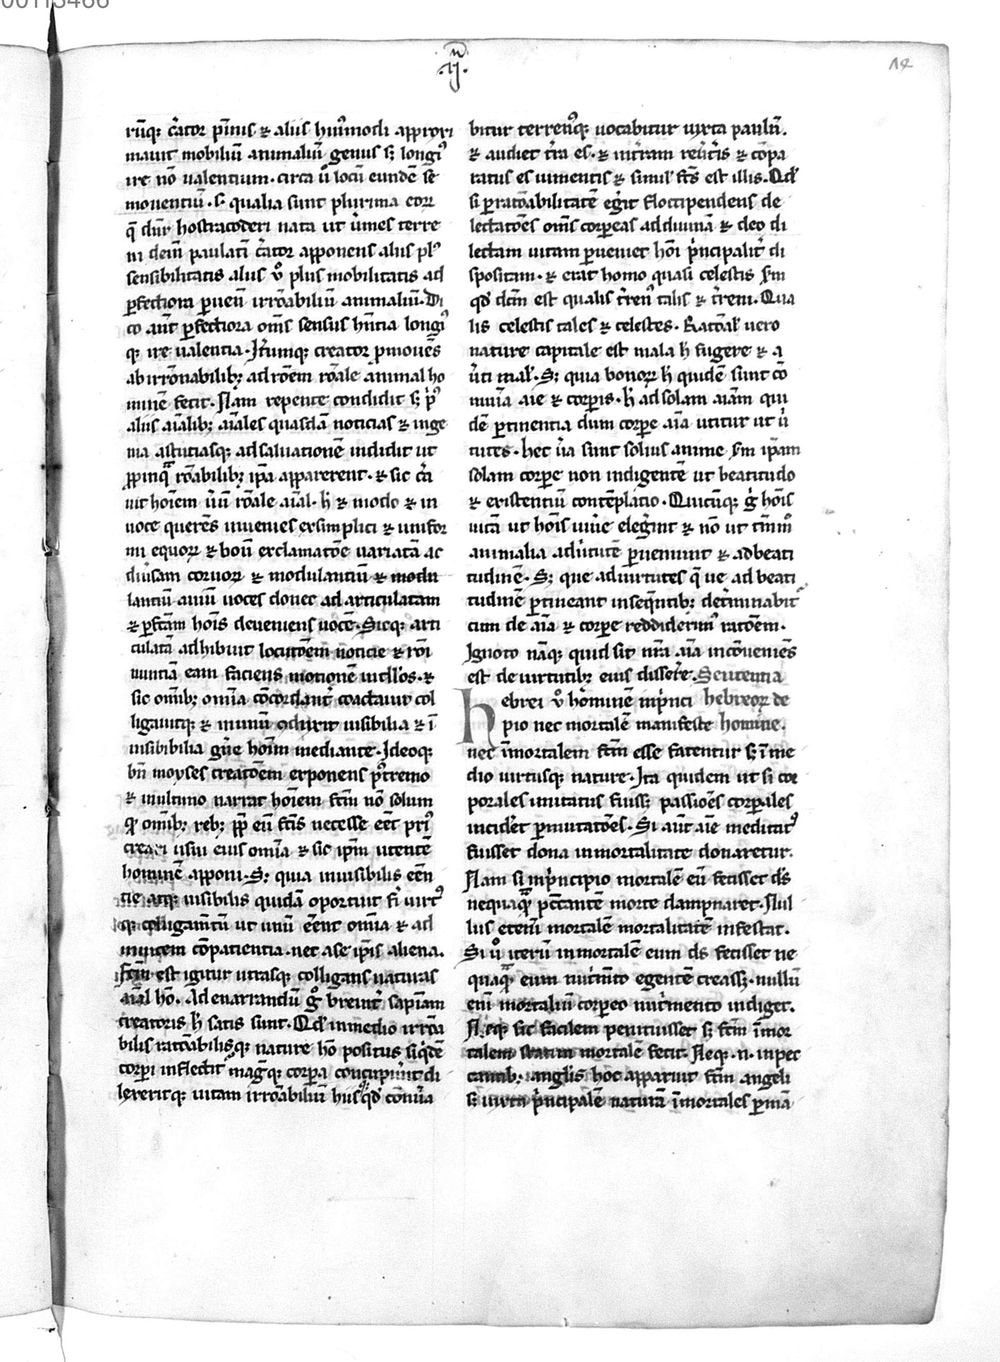 00113466
.ij.
14
rūq; c̄ator p̄inis ⁊ aliis hiꝰmodi approxi
mauit mobiliū animaliū genus s; longiꝰ
ire nō ualentium. circa ū locū eundē se
mouentiū. s. qualia sunt plurima cor
q̄ dn̄r hostracoderi nata ut ūmes terre
ni dein̄ paulatī c̄ator apponens aliis plꝰ
sensibilitatis aliis ū plus mobilitatis ad
ꝑfectiora ꝑuen̄ irrōabiliū animaliū. Di
co aūt ꝑfectiora om̄s sensus hn̄tia longiꝰ
q; ire ualentia. Jt̄umq; creator ꝓmouēs
ab irrōnabilib; ad rōem rōale animal ho
minē fecit. Nam repente condidit s; pꝰ
aliis aīalib; aīales quasdā noticias ⁊ inge
nia astutiasq; ad saluationē indidit ut
ꝓpinq̄ rōabilib; ip̄a apparerent. ⁊ sic c̄a
uit hoīem ūū rōale aīal. h̄ ⁊ modo ⁊ in
uoce querēs inuenies ex simplici ⁊ unifor
mi equoꝝ ⁊ boū exclamatōe uariatā ac
diūsam coruoꝝ ⁊ modulantiū ⁊ modu
lantiū auiū uoces donec ad articulatam
⁊ ꝑfc̄am hoīs deueniens uocē. Sicq; arti
culatā adhibuit locutōem noticie ⁊ rōi
nuntiā eam faciens motionē intll̄os. ⁊
sic omīb; omīa cōcordant̄ coactauit col
ligauitq; ⁊ inunū ꝯdixit uisibilia ⁊ ī
uisibibilia gn̄e hoīm mediante. Jdeoq;
bn̄ moyses creatōem exponens pꝰtremo
⁊ in ultimo narrat hoīem fc̄m nō solum
q̄ omīb; reb; ꝓp̄ eū fc̄is necesse eēt priꝰ
creari usui eius omīa ⁊ sic ip̄m utentē
hominē apponi. S; quia inuisibilis eēn
tie atq; uisibilis quidā oportuit fi uirtꝰ
q; colligam̄tū ut unū eēnt omīa ⁊ ad
inuicem cōpatientia. nec a se ip̄is aliena.
fc̄m est igitur utrasq; colligans naturas
aīal hō. Ad enarrandū g̊ breuit̄ sapīam
creatoris h̄ satis sunt. Qd̄ in medio irrōa
bilis ratōabilisq; nature hō positus siq̄dē
corpi inflectit̄ magq; corpa concupiūit di
lexeritq; uitam irrōabiliū husq̄; q̄d conūa
bitur terrenꝰq; uocabitur iuxta paulū.
⁊ audiet t̄ra es. ⁊ in t̄ram reūt̄is ⁊ cōpa
ratus es iumentis ⁊ simil̄ fc̄s est illis. Qd̄
si ꝑ ratōabilitatē eḡit floccipendens de
lectatōes om̄s corpeas ad diuinā ⁊ deo di
lectam uitam ꝑueniet hōi p̄ncipalit̄ di
spositam. ⁊ erat homo quasi celestis sm̄
qd̄ dc̄m est qualis t̄renꝰ talis ⁊ t̄reni. Qua
lis celestis tales ⁊ celestes. Ratōal̄ uero
nature capitale est mala h̄ fugere ⁊ a
ūti mal̄. S; quia bonoꝝ h̄ quidē sunt cō
munia aīe ⁊ corpis. h̄ ad solam aīam qui
dē ꝑtinentia dum corpe aīa utitur ut ū
tutes. hec ūa sunt solius anime sm̄ ip̄am
solam corpe non indigentē ut beatitudo
⁊ existentiū contēplatio. Quicūq; g̊ hoīs
uitā ut hoīs uiūe eleḡint ⁊ nō ut tm̄m̊
animalia ad ūtutē ꝑueniunt ⁊ ad beati
tudinē. S; que ad uirtutes q̄ ue ad beati
tudinē ꝑtineant in seq̄ntib; det̄minabit̄
cum de aīa ⁊ corpe reddiderimꝰ ratōem.
Ignoto nāq; quid sit nr̄a aīa incōueniēs
est de uirtutib; eius dissere̅. Sententia
hebrei ū hōminem in p̄nci hebreoꝝ de
pio nec mortalē manifeste homine.
nec īmortalem fc̄m esse fatentur s; ī me
dio utriusq; nature. Jta quidem ut si cor
porales imitatus fuiss; passiōes corꝑales
incideret ꝑmutatōes. Si aūt aīe meditatꝰ
fuisset dona inmortalitate donaretur.
Nam si in p̄ncipio mortalē eū fecisset dꝰs
nequaq̄ peccantē morte dampnaret. Nul
lus eteīm mortalē mortalitatē infestat.
Si ū iterū inmortalē eum dꝰs fecisset ne
quaq̄ eum nutimēto egentē creass;. nullū
enī mortaliū corpeo nut̄mento indiget.
Neq; sic facilem penituisset s; fc̄m īmor
talem statim mortalē fecit. Neq; .n. in pec
cantib; anglis hoc apparuit fc̄m angeli
s; iuxta p̄ncipalē naturā īmortales ꝑmā